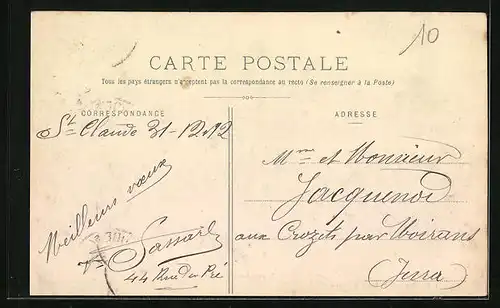 10
CARTE POSTALE
Tous les pays étrangers n'acceptent pas la correspondance au recto (Se renseigner à la Poste)
CORRESPONDANCE
ADRESSE
St Claude 31-12-12
Meilleurs vœux
44 Rue du Pré
Mme et Monsieur
Jacquenod
aux Crozets par Moirans
(Jura)